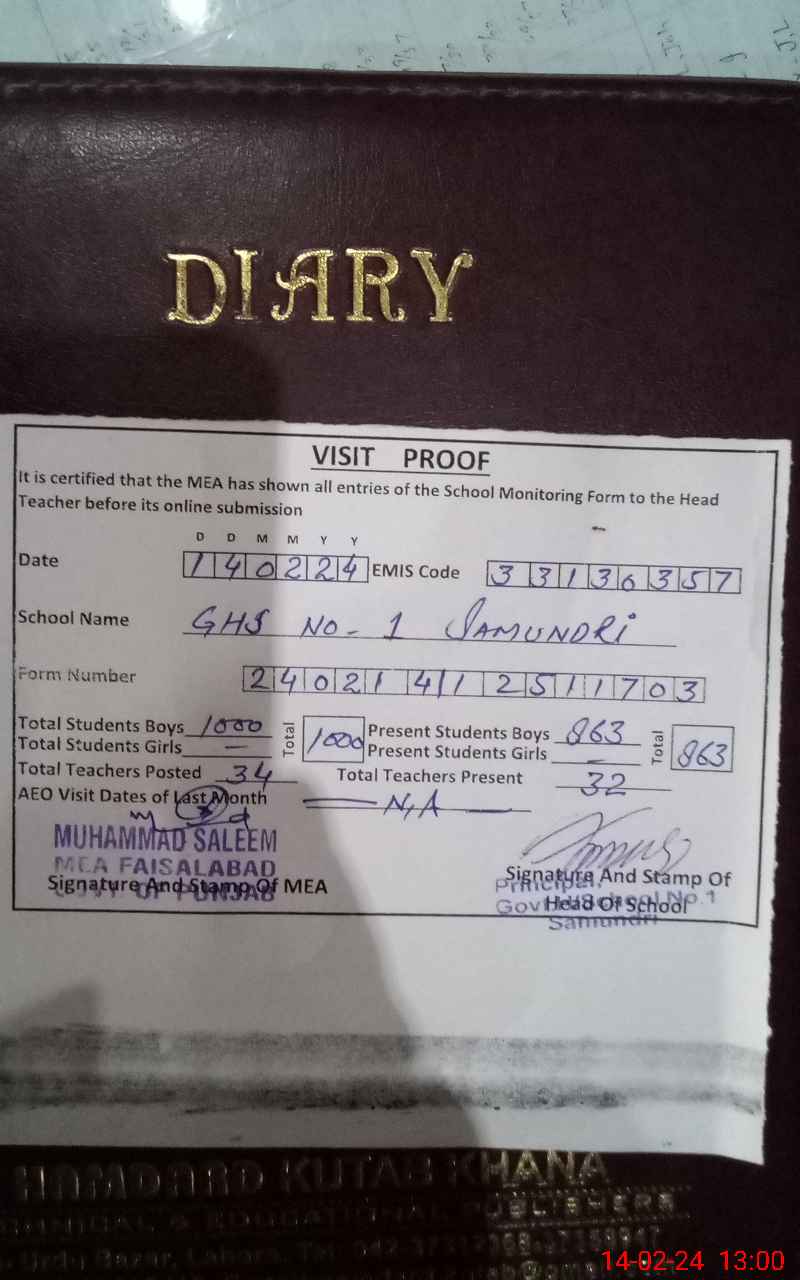 DIARY
VISIT PROOF
It is certified that the MEA has shown all entries of the School Monitoring Form to the Head
Teacher before its online submission
D D M M Y Y
Date 140224 EMIS Code 33136357
School Name GHS NO-1 SAMUNDRi
Form Number 24021412511703
Total Students Boys 1000 Total 1000 Present Students Boys 863 Total 863
Total Students Girls — Present Students Girls —
Total Teachers Posted 34 Total Teachers Present 32
AEO Visit Dates of Last Month N,A
MUHAMMAD SALEEM
MEA FAISALABAD
GOVT OF PUNJAB
Signature And Stamp Of MEA
Signature And Stamp Of
Head Of School
Principal,
School No.1
Samundri
HAMDARD KUTAB KHANA
& EDUCATIONAL PUBLISHERS
Urdu Bazar, Lahore, Tel: 042-
14-02-24 13:00